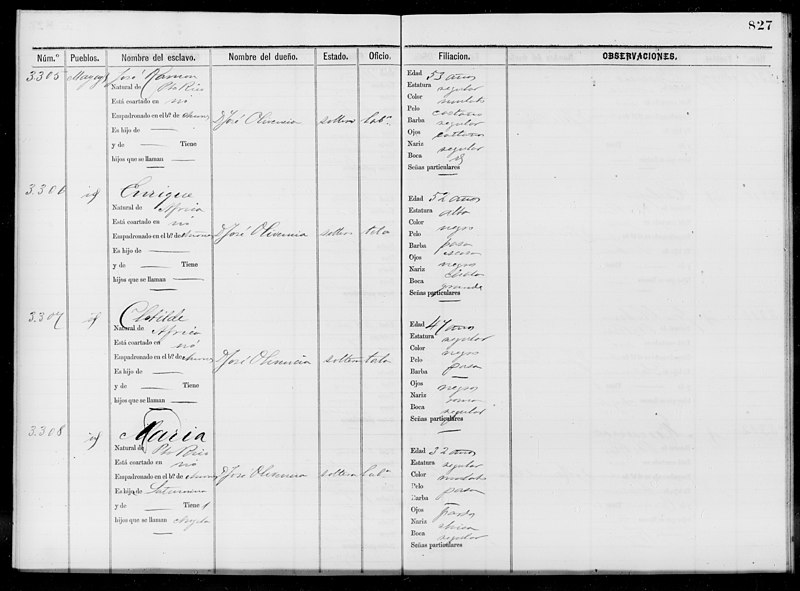 827
Núm.º Pueblos. Nombre del esclavo. Nombre del dueño. Estado. Oficio. Filiacion. OBSERVACIONES.
3305 José Ramon
Natural de Pto Rico
Está coartado en no
Empadronado en el bº. de D José Olivencia soltero Labr.
Es hijo de —
y de — Tiene
hijos que se llaman —
Edad 53 años
Estatura regular
Color mulato
Pelo castaño
Barba regular
Ojos castaños
Nariz regular
Boca
Señas particulares —
3306 id Enrique
Natural de Africa
Está coartado en no
Empadronado en el bº. de D José Olivencia soltero
Es hijo de —
y de — Tiene
hijos que se llaman —
Edad 52 años
Estatura alta
Color negro
Pelo pasa
Barba escasa
Ojos negros
Nariz chata
Boca grande
Señas particulares —
3307 id Clotilde
Natural de Africa
Está coartado en no
Empadronado en el bº. de D José Olivencia soltera
Es hijo de —
y de — Tiene
hijos que se llaman —
Edad 47 años
Estatura regular
Color negro
Pelo pasa
Barba —
Ojos negros
Nariz
Boca regular
Señas particulares —
3308 id Maria
Natural de Pto Rico
Está coartado en no
Empadronado en el bº. de D José Olivencia soltera Labª
Es hijo de Saturnina
y de — Tiene 1
hijos que se llaman —
Edad 32 años
Estatura regular
Color mulato
Pelo pasa
Barba —
Ojos pardos
Nariz
Boca regular
Señas particulares